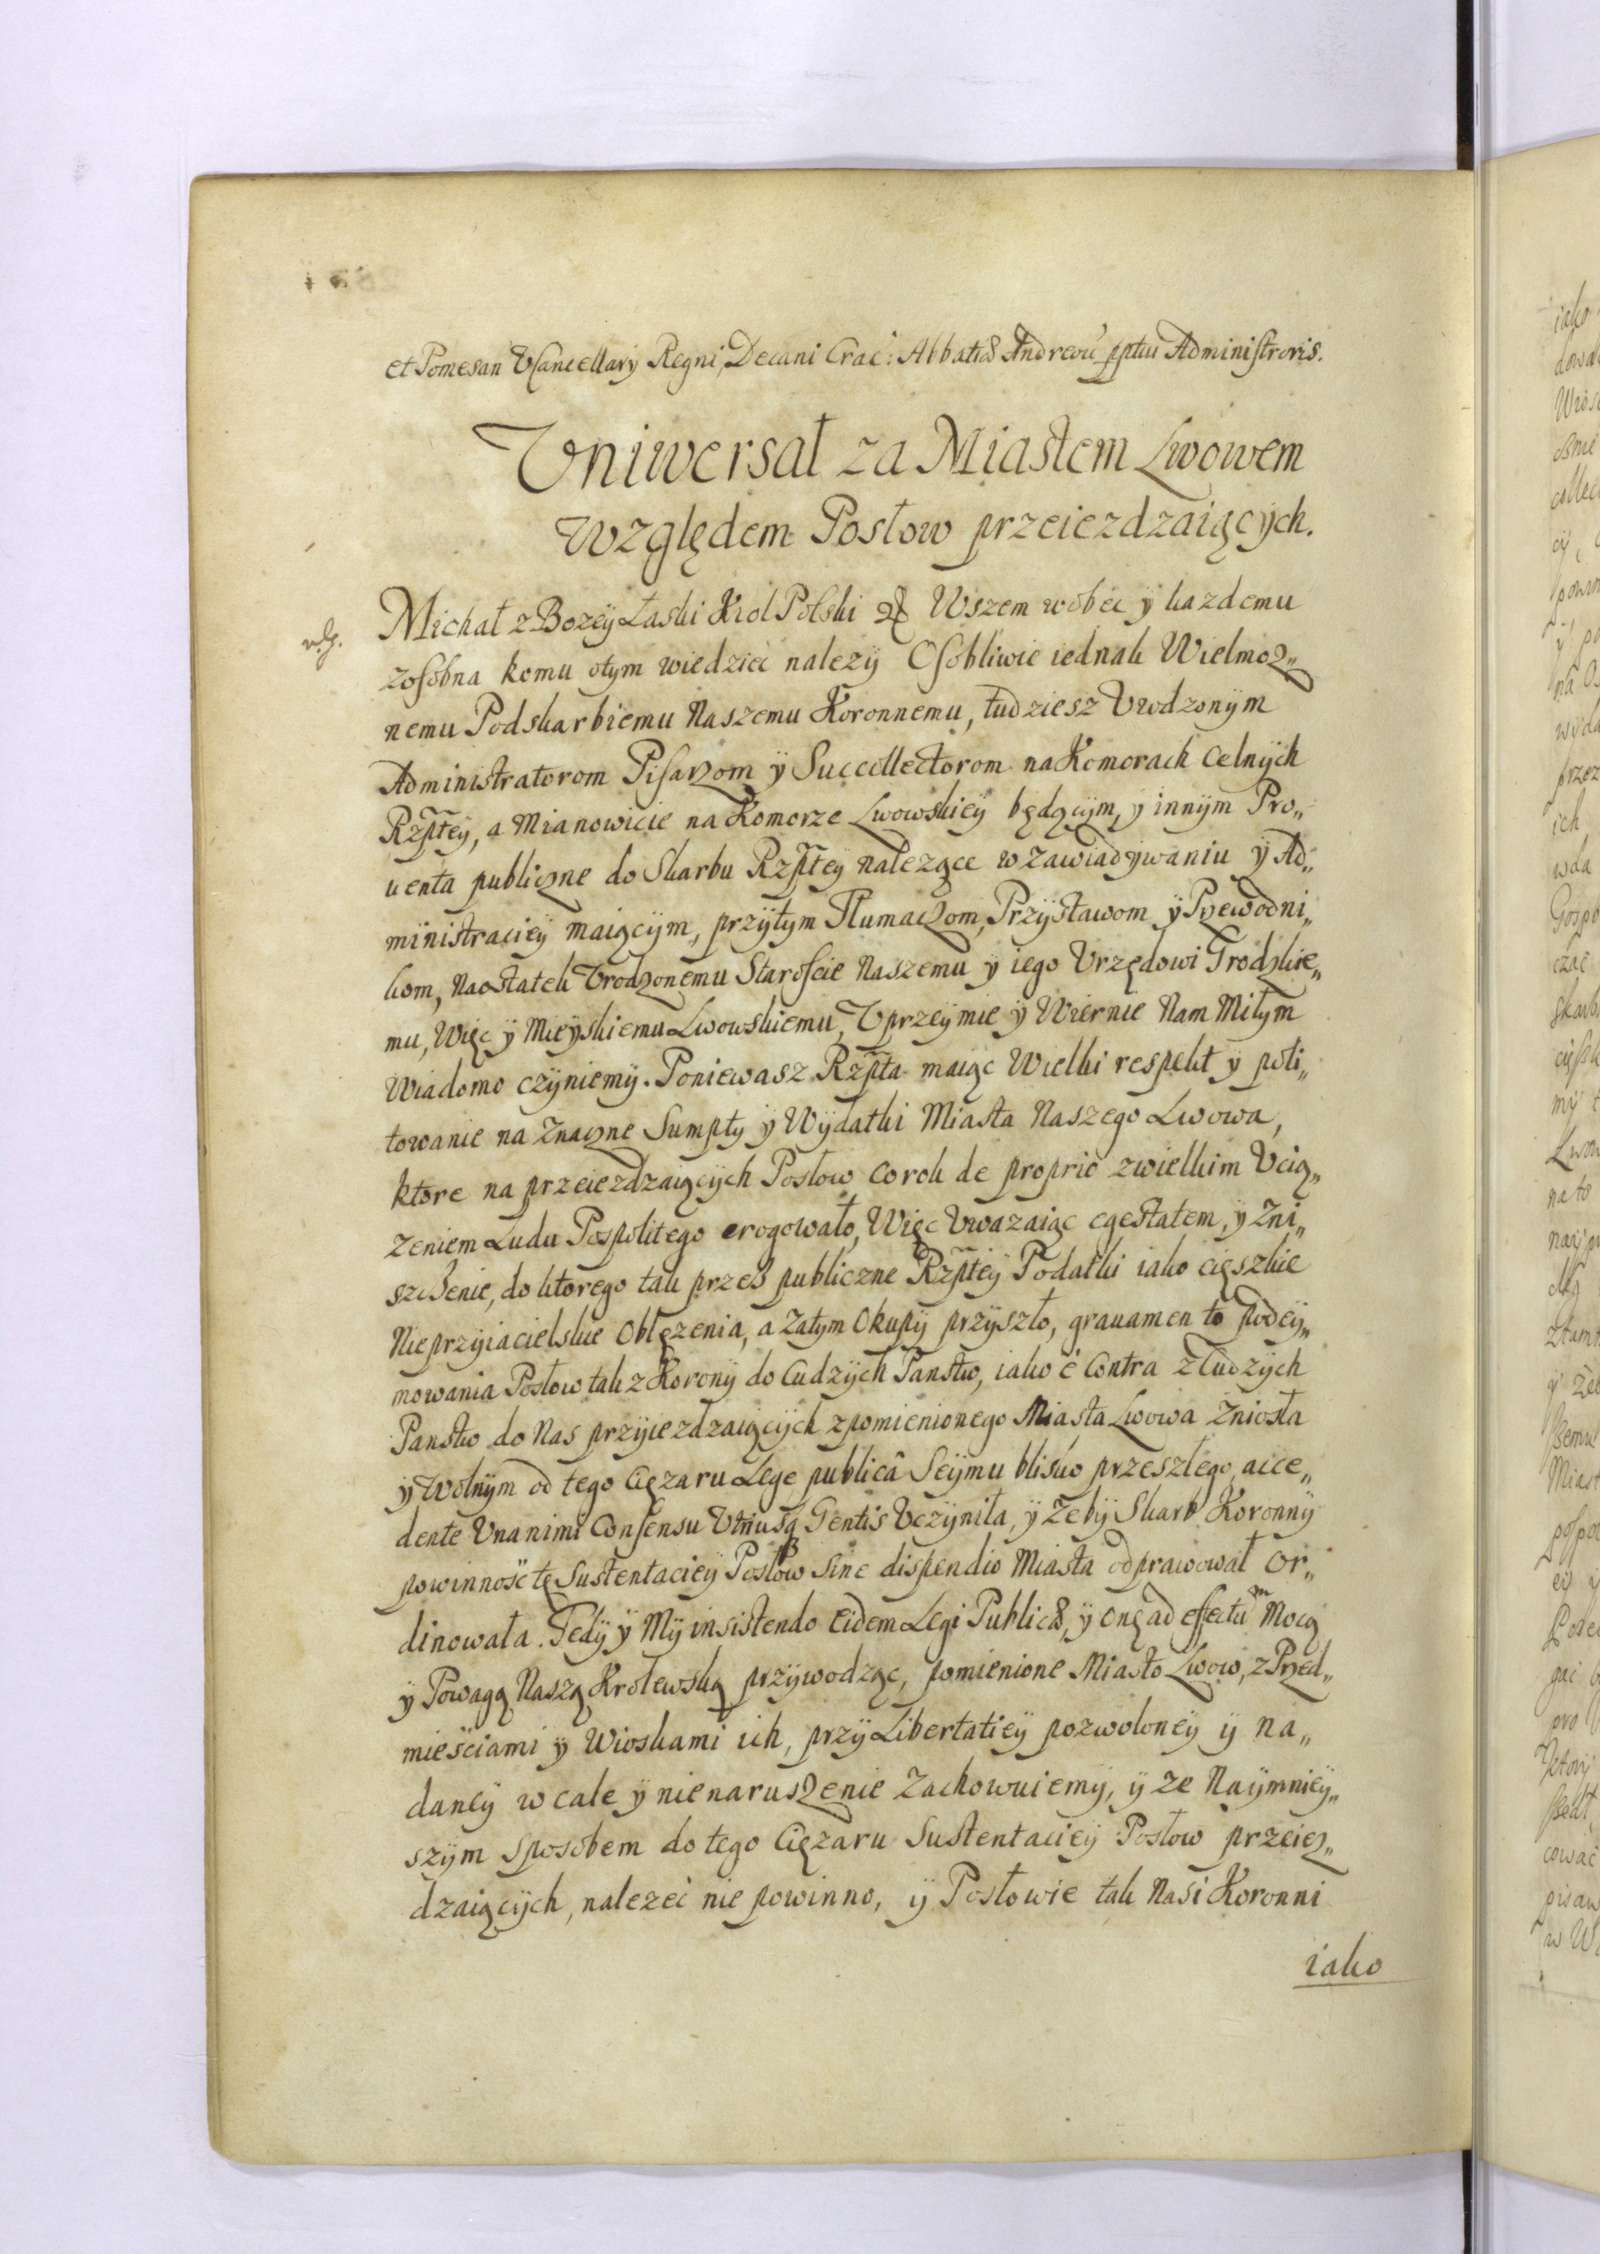 et Pomesan Vcancellarÿ Regni, Decani Crac: Abbatiæ Andreoů pptui Administroris.
Vniwersał za Miastem Lwowem
Względem Posłow przeiezdzaiących.
Michał z Bozeÿ Łaski Krol Polski &c Wszem wobec ÿ kazdemu
zosobna komu otym wiedziec nalezÿ Osobliwie iednak Wielmoz„
nemu Podskarbiemu Naszemu Koronnemu, tudziesz Vrodzonÿm
Administratorom Pisarzom ÿ Succollectorom na Komorach Celnÿch
Rzp̃teÿ, a Mianowicie na Komorze Lwowskieÿ będącÿm, ÿ innÿm Pro„
uenta publiczne do Skarbu Rzp̃teÿ nalezące w zawiadÿwaniu ÿ Ad„
ministracieÿ maiącÿm, przÿtym Tłumaczom, Przÿstawom ÿ Przewodni„
kom, Naostatek Vrodzonemu Staroscie Naszemu ÿ iego Vrzędowi Grodzkie„
mu, Więc ÿ Mieÿskiemu Lwowskiemu, Vprzeÿmie ÿ Wiernie Nam Miłÿm
Wiadomo czÿniemÿ. Poniewasz Rzp̃ta maiąc Wielki respekt ÿ poli„
towanie na Znaczne Sumptÿ ÿ Wÿdatki Miasta Naszego Lwowa,
ktore na przeiezdzaiącÿch Posłow co rok de proprio zwielkim Vcią„
zeniem Ludu Pospolitego erogowało, Więc Vwazaiąc egestatem, ÿ Zni„
szczenie, do ktorego tak przes publiczne Rzp̃teÿ Podatki iako cięszkie
Nieprzÿiacielskie Oblęzenia, a Zatÿm Okupÿ przÿszło, grauamen to podeÿ„
mowania Posłow tak z Koronÿ do Cudzÿch Panstw, iako è Contra z Cudzÿch
Panstw do Nas przÿiezdzaiącÿch z pomienionego Miasta Lwowa Zniosła
ÿ Wolnÿm od tego Cięzaru Lege publicâ Seÿmu blisko przeszłego acce„
dente Vnanimi Consensu Vtriusq Gentis Vczÿniła, ÿ Zebÿ Skarb Koronnÿ
powinność tę Sustentacieÿ Posłow Sine dispendio Miasta odprawował Or„
dinowała. Tedÿ ÿ Mÿ insistendo Eidem Legi Publicæ, ÿ onę ad effectum Mocą
ÿ Powagą Naszą Krolewską przÿwodząc, pomienione Miasto Lwow, z Przed„
mieściami ÿ Wioskami ich, przÿ Libertatieÿ pozwoloneÿ ÿ na„
daneÿ w cale ÿ nienaruszenie Zachowuiemÿ, ÿ ze Naÿmnieÿ„
szÿm sposobem do tego Cięzaru Sustentacieÿ Posłow przeiez„
dzaiącÿch, nalezeć nie powinno, ÿ Posłowie tak Nasi Koronni
iako